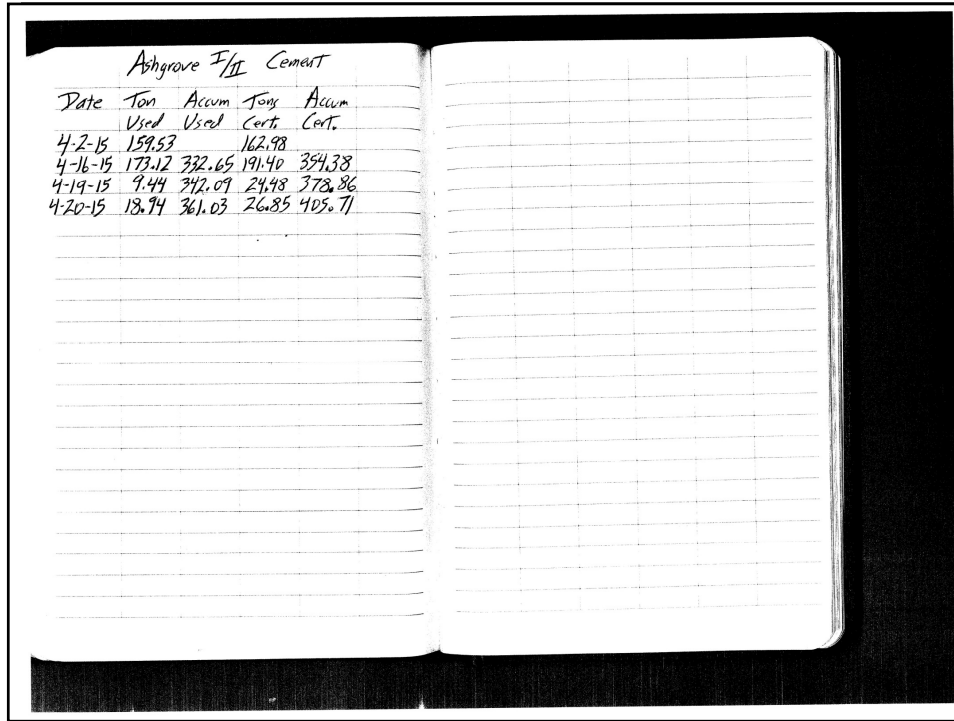 Ashgrove I/II Cement
Date Ton Accum Tons Accum
Used Used Cert. Cert.
4-2-15 159.53 162.98
4-16-15 173.12 332.65 191.40 354.38
4-19-15 9.44 342.09 24.48 378.86
4-20-15 18.94 361.03 26.85 405.71